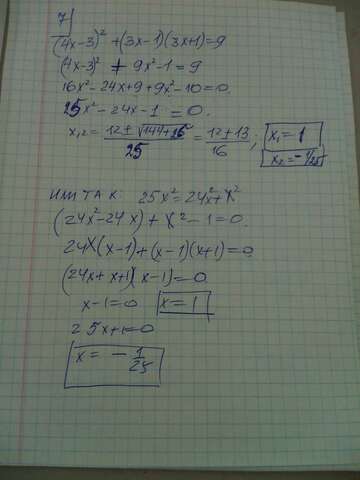 7)
(4x-3)² + (3x-1)(3x+1)=9
(4x-3)² + 9x²-1=9
16x²-24x+9+9x²-10=0
25x²-24x-1=0.
x₁,₂= (12±√(144+25))/25 = (12±13)/16; x₁=1
x₂=-1/25
ИЛИ ТАК: 25x²=24x²+x²
(24x²-24x)+x²-1=0.
24x(x-1)+(x-1)(x+1)=0
(24x+x+1)(x-1)=0
x-1=0 x=1
25x+1=0
x= - 1/25